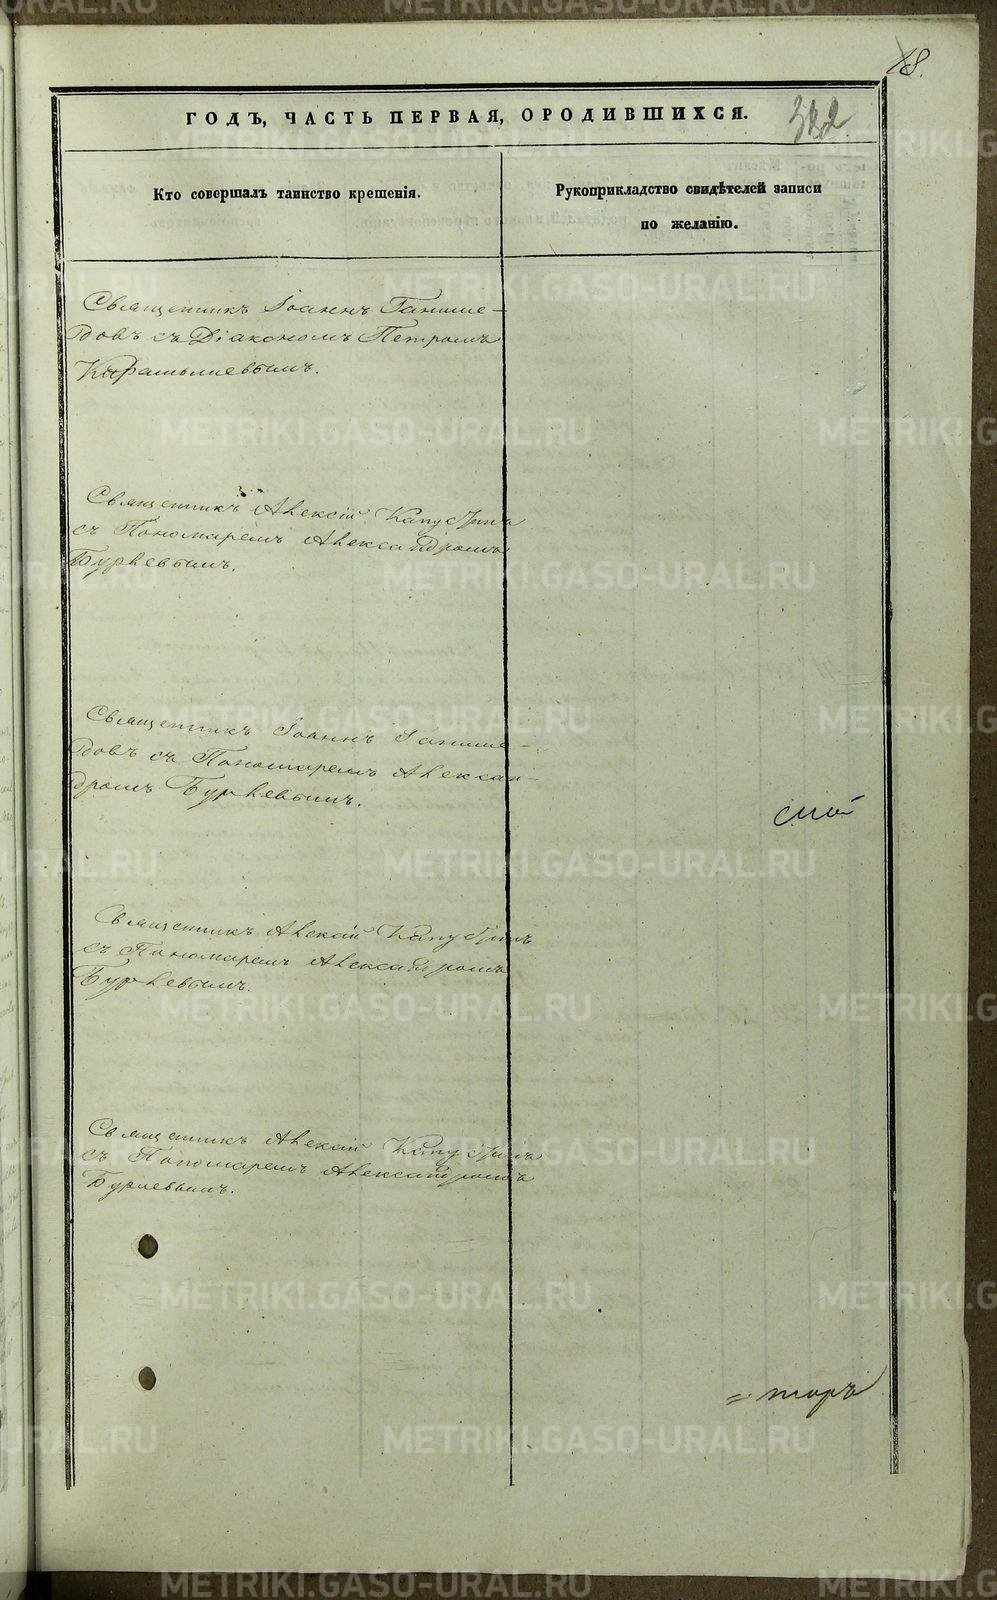 18.
ГОДЪ, ЧАСТЬ ПЕРВАЯ, О РОДИВШИХСЯ.
322
Кто совершалъ таинство крещенія.
Рукоприкладство свидѣтелей записи
по желанію.
Священникъ Іоаннъ Ганиме-
довъ съ Діакономъ Петромъ
Священникъ Алексій Капустинъ
съ Пономаремъ Александромъ
Бурлевымъ.
Священникъ Іоаннъ Ганиме-
довъ съ Пономаремъ Алексан-
дромъ Бурлевымъ.
Священникъ Алексій Капустинъ
съ Пономаремъ Александромъ
Бурлевымъ.
Священникъ Алексій Капустинъ
съ Пономаремъ Александромъ
Бурлевымъ.
METRIKI.GASO-URAL.RU